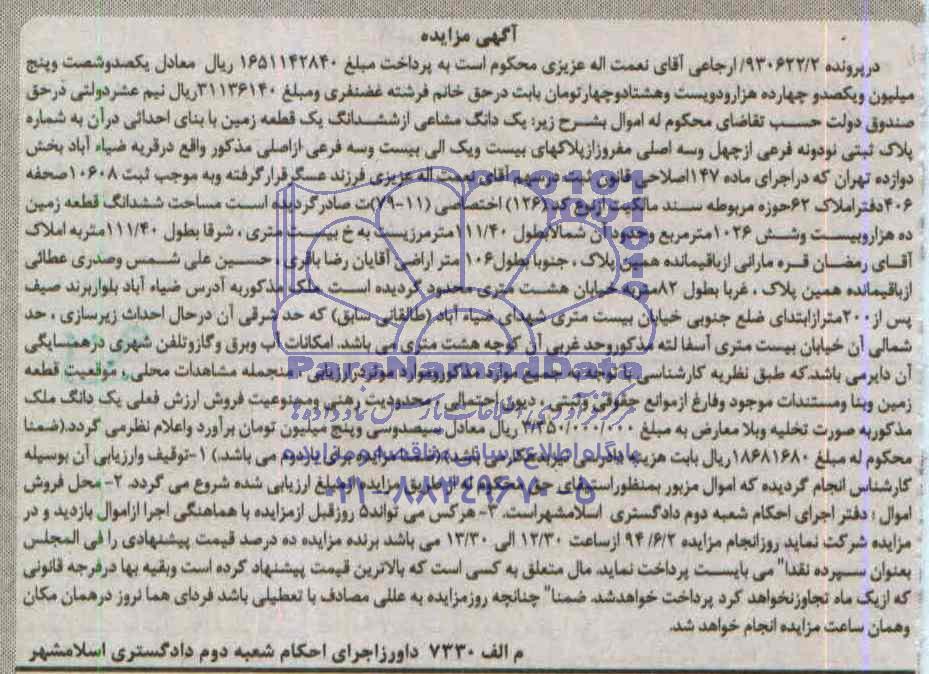 آگهی مزایده
درپرونده ۹۳۰۶۲۲/۲/ ارجاعی آقای نعمت اله عزیزی محکوم است به پرداخت مبلغ ۱۶۵۱۱۴۲۸۴۰ ریال معادل یکصدوشصت وپنج
میلیون ویکصدو چهارده هزارودویست وهشتادوچهارتومان بابت درحق خانم فرشته غضنفری ومبلغ ۳۱۱۳۶۱۴۰ریال نیم عشردولتی درحق
صندوق دولت حسب تقاضای محکوم له اموال بشرح زیر: یک دانگ مشاعی ازششدانگ یک قطعه زمین با بنای احداثی درآن به شماره
پلاک ثبتی نودونه فرعی ازچهل وسه اصلی مفروزازپلاکهای بیست ویک الی بیست وسه فرعی ازاصلی مذکور واقع درقریه ضیاء آباد بخش
دوازده تهران که دراجرای ماده ۱۴۷اصلاحی قانون ثبت درسهم آقای نعمت اله عزیزی فرزند عسگرقرارگرفته وبه موجب ثبت ۱۰۶۰۸صفحه
۴۰۶دفتراملاک ۶۲حوزه مربوطه سند مالکیت ازنوع کد (۱۲۶) اختصاصی (۱۱-۷۹)ت صادرگردیده است مساحت ششدانگ قطعه زمین
ده هزاروبیست وشش ۱۰۲۶مترمربع وحدود آن شمالابطول ۱۱۱/۴۰مترمرزیست به خ بیست متری ، شرقا بطول ۱۱۱/۴۰متربه املاک
آقای رمضان قره مارانی ازباقیمانده همین پلاک ، جنوبا بطول۱۰۶ متر اراضی آقایان رضا باقری ، حسین علی شمس وصدری عطائی
ازباقیمانده همین پلاک ، غربا بطول ۸۲متربه خیابان هشت متری محدود گردیده است ملک مذکوربه آدرس ضیاء آباد بلواربرند صیف
پس از۲۰۰مترازابتدای ضلع جنوبی خیابان بیست متری شهدای ضیاء آباد (طالقانی سابق) که حد شرقی آن درحال احداث زیرسازی ، حد
شمالی آن خیابان بیست متری آسفا لته مذکوروحد غربی آن کوچه هشت متری می باشد. امکانات آب وبرق وگازوتلفن شهری درهمسایگی
آن دایرمی باشدکه طبق نظریه کارشناسی با توجه به جمیع موارد مذکوروموارد موثردرارزیابی ، منجمله مشاهدات محلی ، موقعیت قطعه
زمین وبنا ومستندات موجود وفارغ ازموانع حقوقی وثبتی ، دیون احتمالی ، محدودیت رهنی وممنوعیت فروش ارزش فعلی یک دانگ ملک
مذکوربه صورت تخلیه وبلا معارض به مبلغ ریال معادل سیصدوسی وپنج میلیون تومان برآورد واعلام نظرمی گردد.(ضمنا
محکوم له مبلغ ۱۸۶۸۱۶۸۰ریال بابت هزینه دادرسی نیزبدهکارمی باشد) (ضمنا مزایده برای باردوم می باشد) ۱-توقیف وارزیابی آن بوسیله
کارشناس انجام گردیده که اموال مزبور بمنظوراستیفای حق محکوم له از طریق مزایده ازمبلغ ارزیابی شده شروع می گردد. ۲- محل فروش
اموال : دفتر اجرای احکام شعبه دوم دادگستری اسلامشهراست. ۳- هرکس می تواند۵ روزقبل ازمزایده با هماهنگی اجرا ازاموال بازدید و در
مزایده شرکت نماید روزانجام مزایده ۹۴/۶/۲ ازساعت ۱۲/۳۰ الی ۱۳/۳۰ می باشد برنده مزایده ده درصد قیمت پیشنهادی را فی المجلس
بعنوان سپرده نقدا" می بایست پرداخت نماید. مال متعلق به کسی است که بالاترین قیمت پیشنهاد کرده است وبقیه بها درفرجه قانونی
که ازیک ماه تجاوزنخواهد کرد پرداخت خواهدشد. ضمنا" چنانچه روزمزایده به عللی مصادف با تعطیلی باشد فردای هما نروز درهمان مکان
وهمان ساعت مزایده انجام خواهد شد.
م الف ۷۳۳۰ داورزاجرای احکام شعبه دوم دادگستری اسلامشهر
ParsNamadData
پایگاه اطلاع رسانی مناقصه و مزایده
۰۲۱-۸۸۳۴۹۶۷۰-۵